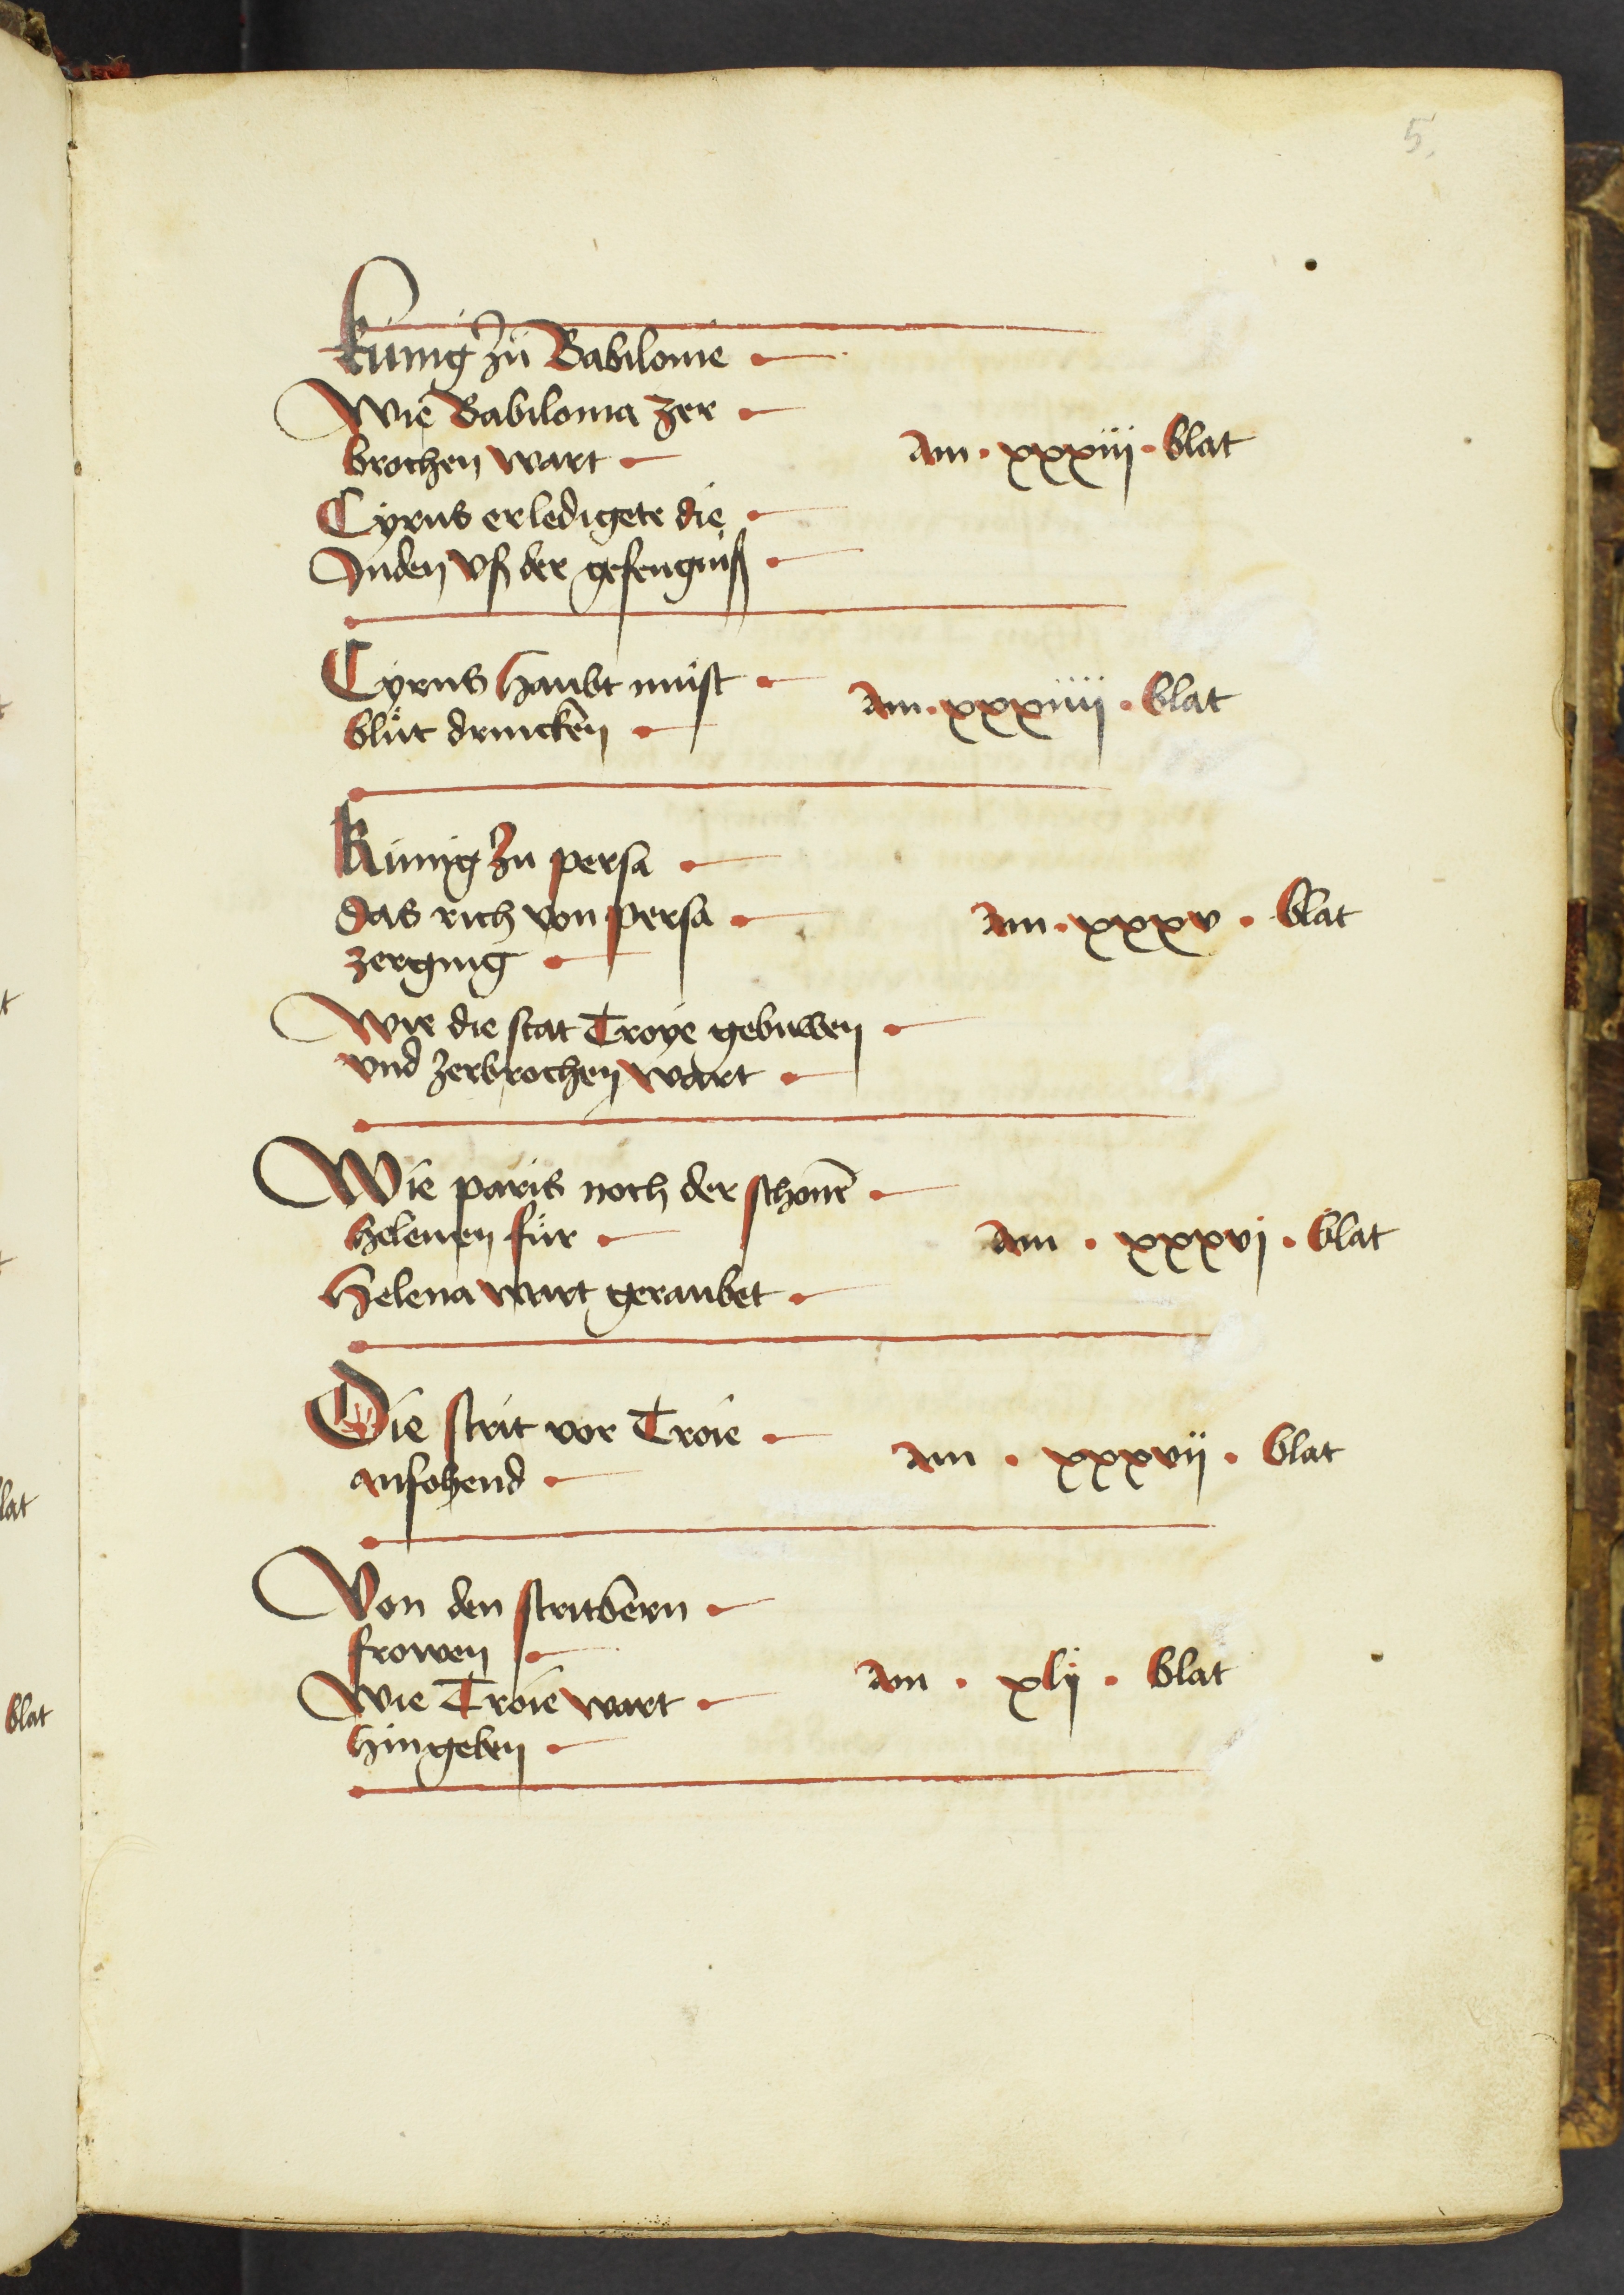 5.
Künig zů Babilonie
Wie Babilonia zer
brochen wart
am · xxxiij · blat
Cyrus erledigete die
Juden vß der gefengniß
Cyrus haubt můst
blůt drincken
am · xxxiiij · blat
Künig zu persa
das rich von persa
zerging
am · xxxv · blat
Wie die stat Troye gebuwen
vnd zerbrochen wart
Wie paris noch der schonē
helenen fůr
am · xxxvj · blat
Helena wart geraubet
Die strit vor Troie
anfohend
am · xxxvij · blat
Von den stritbern
frowen
am · xlj · blat
Wie Troie wart
hingeben
lat
blat